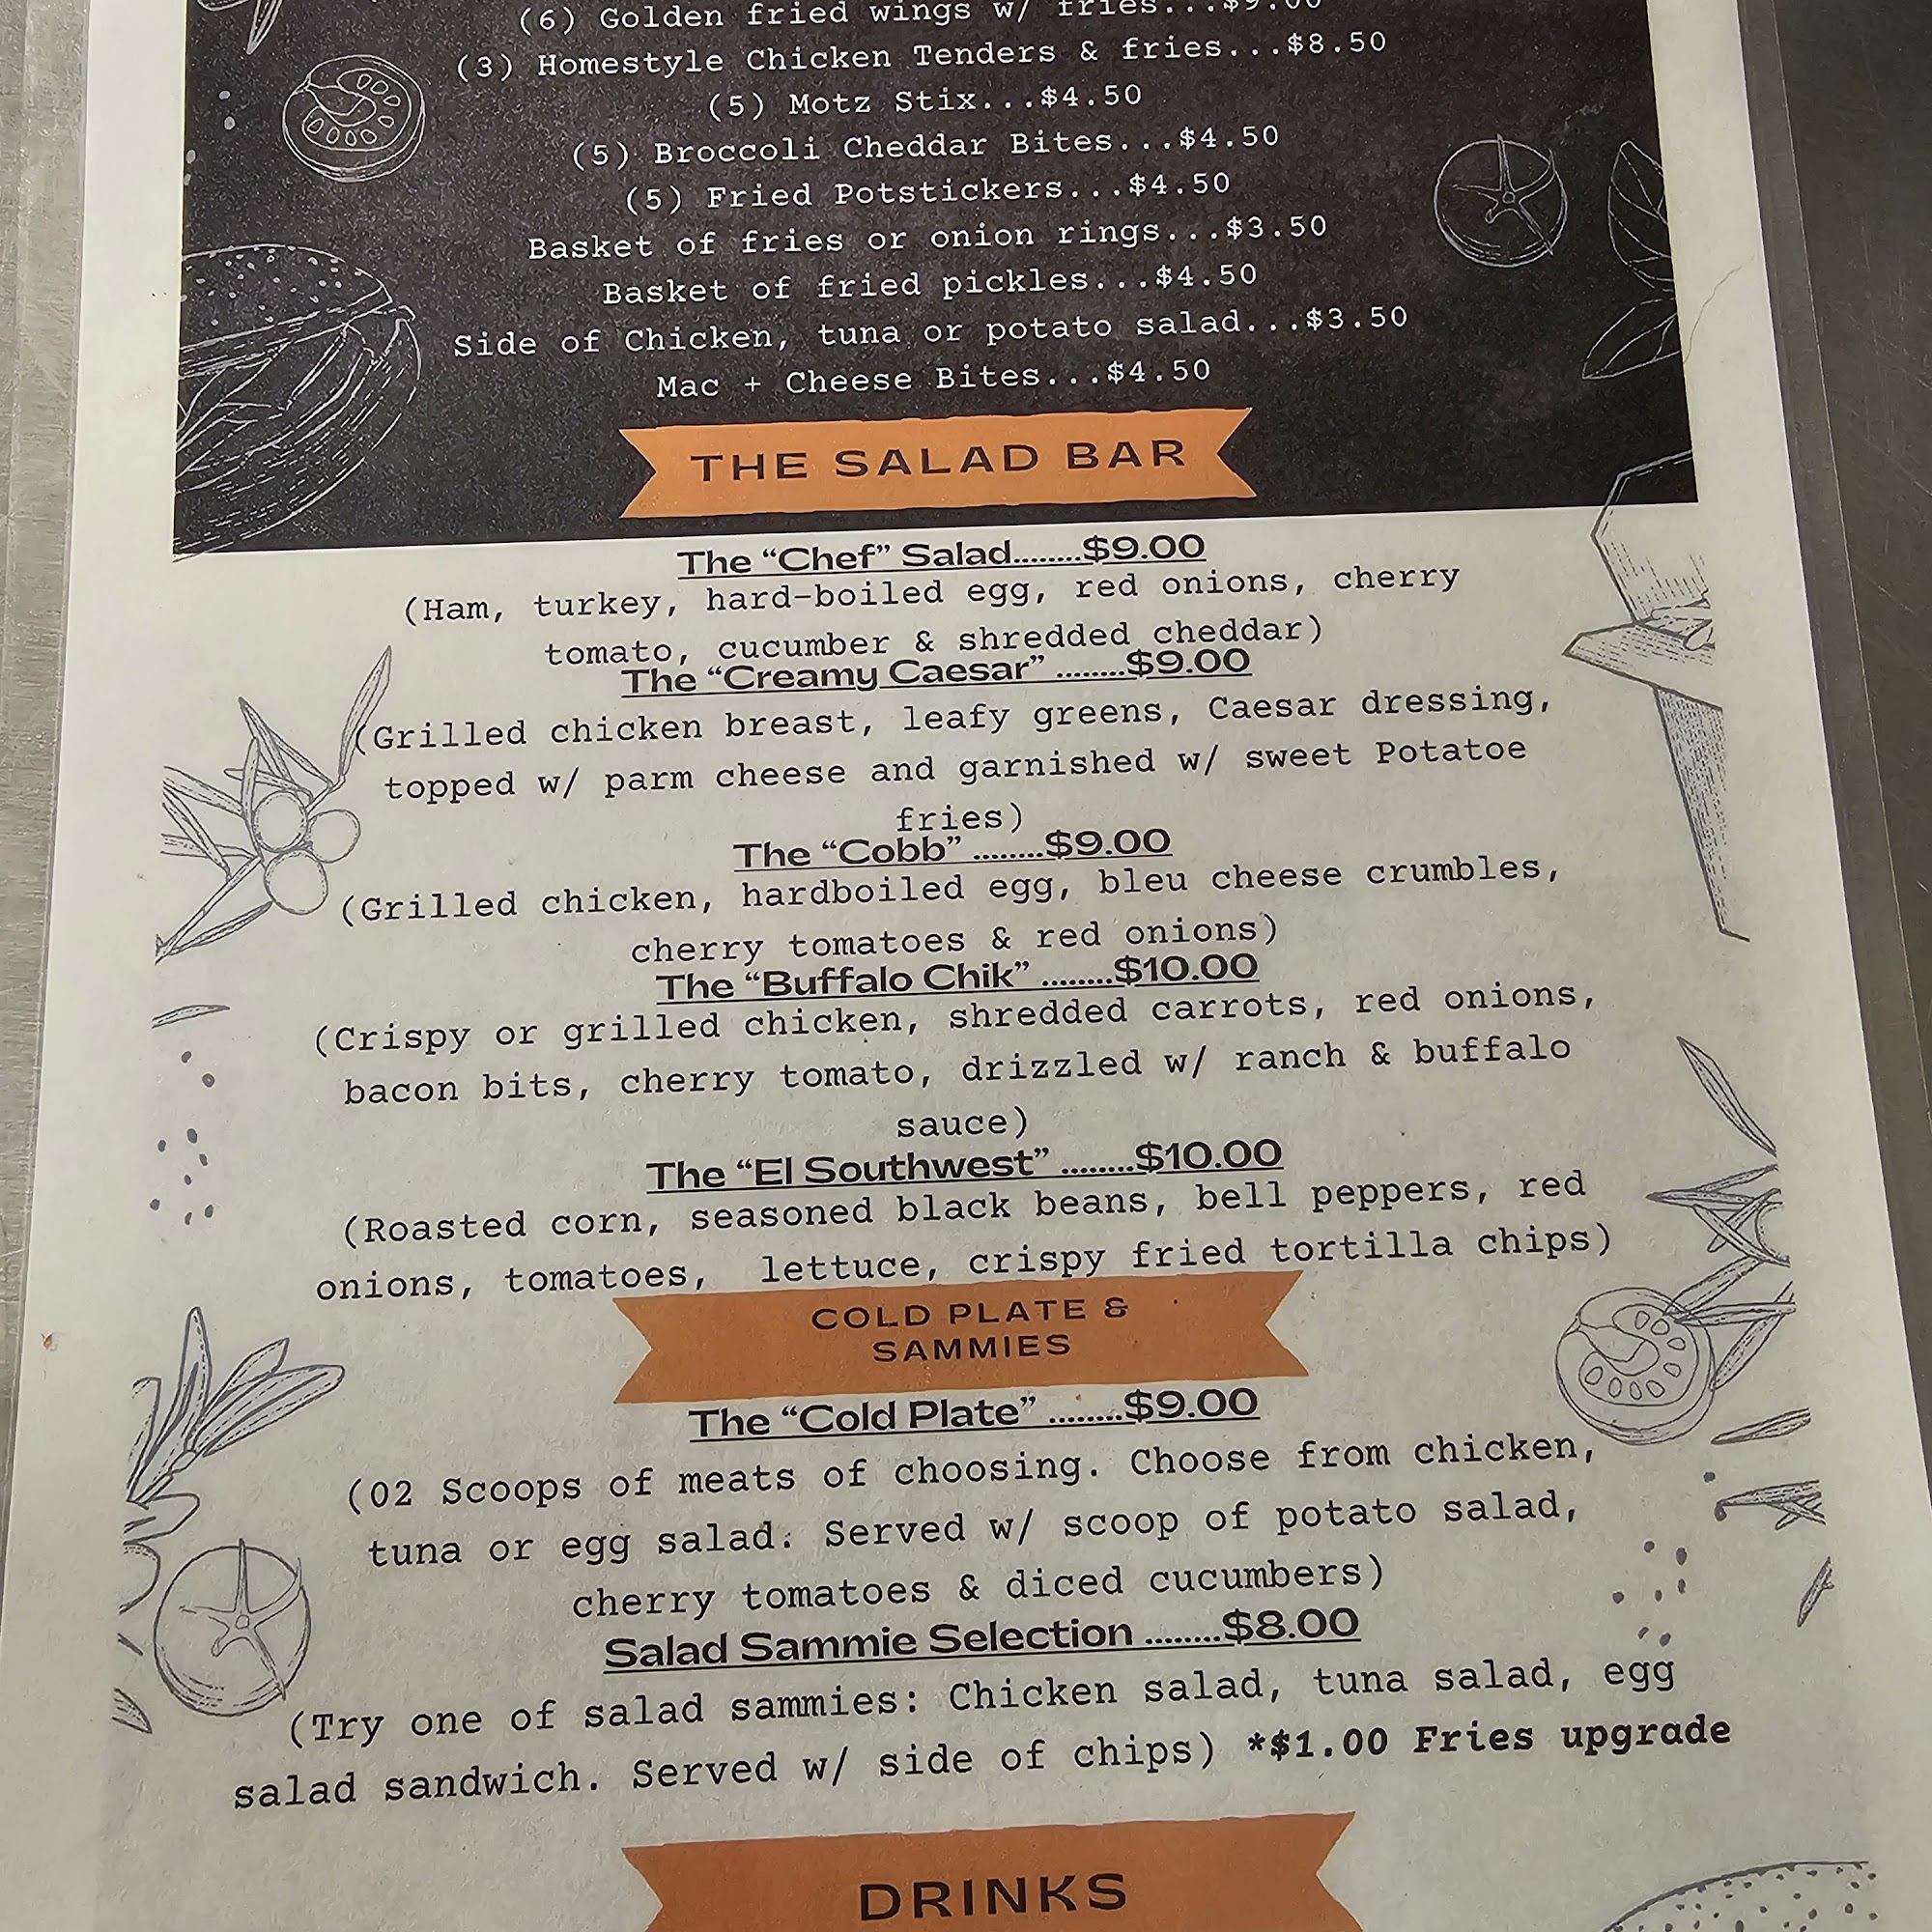 (6) Golden fried wings w/ fries...$9.00
(3) Homestyle Chicken Tenders & fries...$8.50
(5) Motz Stix...$4.50
(5) Broccoli Cheddar Bites...$4.50
(5) Fried Potstickers...$4.50
Basket of fries or onion rings...$3.50
Basket of fried pickles...$4.50
Side of Chicken, tuna or potato salad...$3.50
Mac + Cheese Bites...$4.50
THE SALAD BAR
The “Chef” Salad........$9.00
(Ham, turkey, hard-boiled egg, red onions, cherry
tomato, cucumber & shredded cheddar)
The “Creamy Caesar” ........$9.00
(Grilled chicken breast, leafy greens, Caesar dressing,
topped w/ parm cheese and garnished w/ sweet Potatoe
fries)
The “Cobb” ........$9.00
(Grilled chicken, hardboiled egg, bleu cheese crumbles,
cherry tomatoes & red onions)
The “Buffalo Chik” ........$10.00
(Crispy or grilled chicken, shredded carrots, red onions,
bacon bits, cherry tomato, drizzled w/ ranch & buffalo
sauce)
The “El Southwest” ........$10.00
(Roasted corn, seasoned black beans, bell peppers, red
onions, tomatoes, lettuce, crispy fried tortilla chips)
COLD PLATE &
SAMMIES
The “Cold Plate” ........$9.00
(02 Scoops of meats of choosing. Choose from chicken,
tuna or egg salad. Served w/ scoop of potato salad,
cherry tomatoes & diced cucumbers)
Salad Sammie Selection ........$8.00
(Try one of salad sammies: Chicken salad, tuna salad, egg
salad sandwich. Served w/ side of chips) *$1.00 Fries upgrade
DRINKS